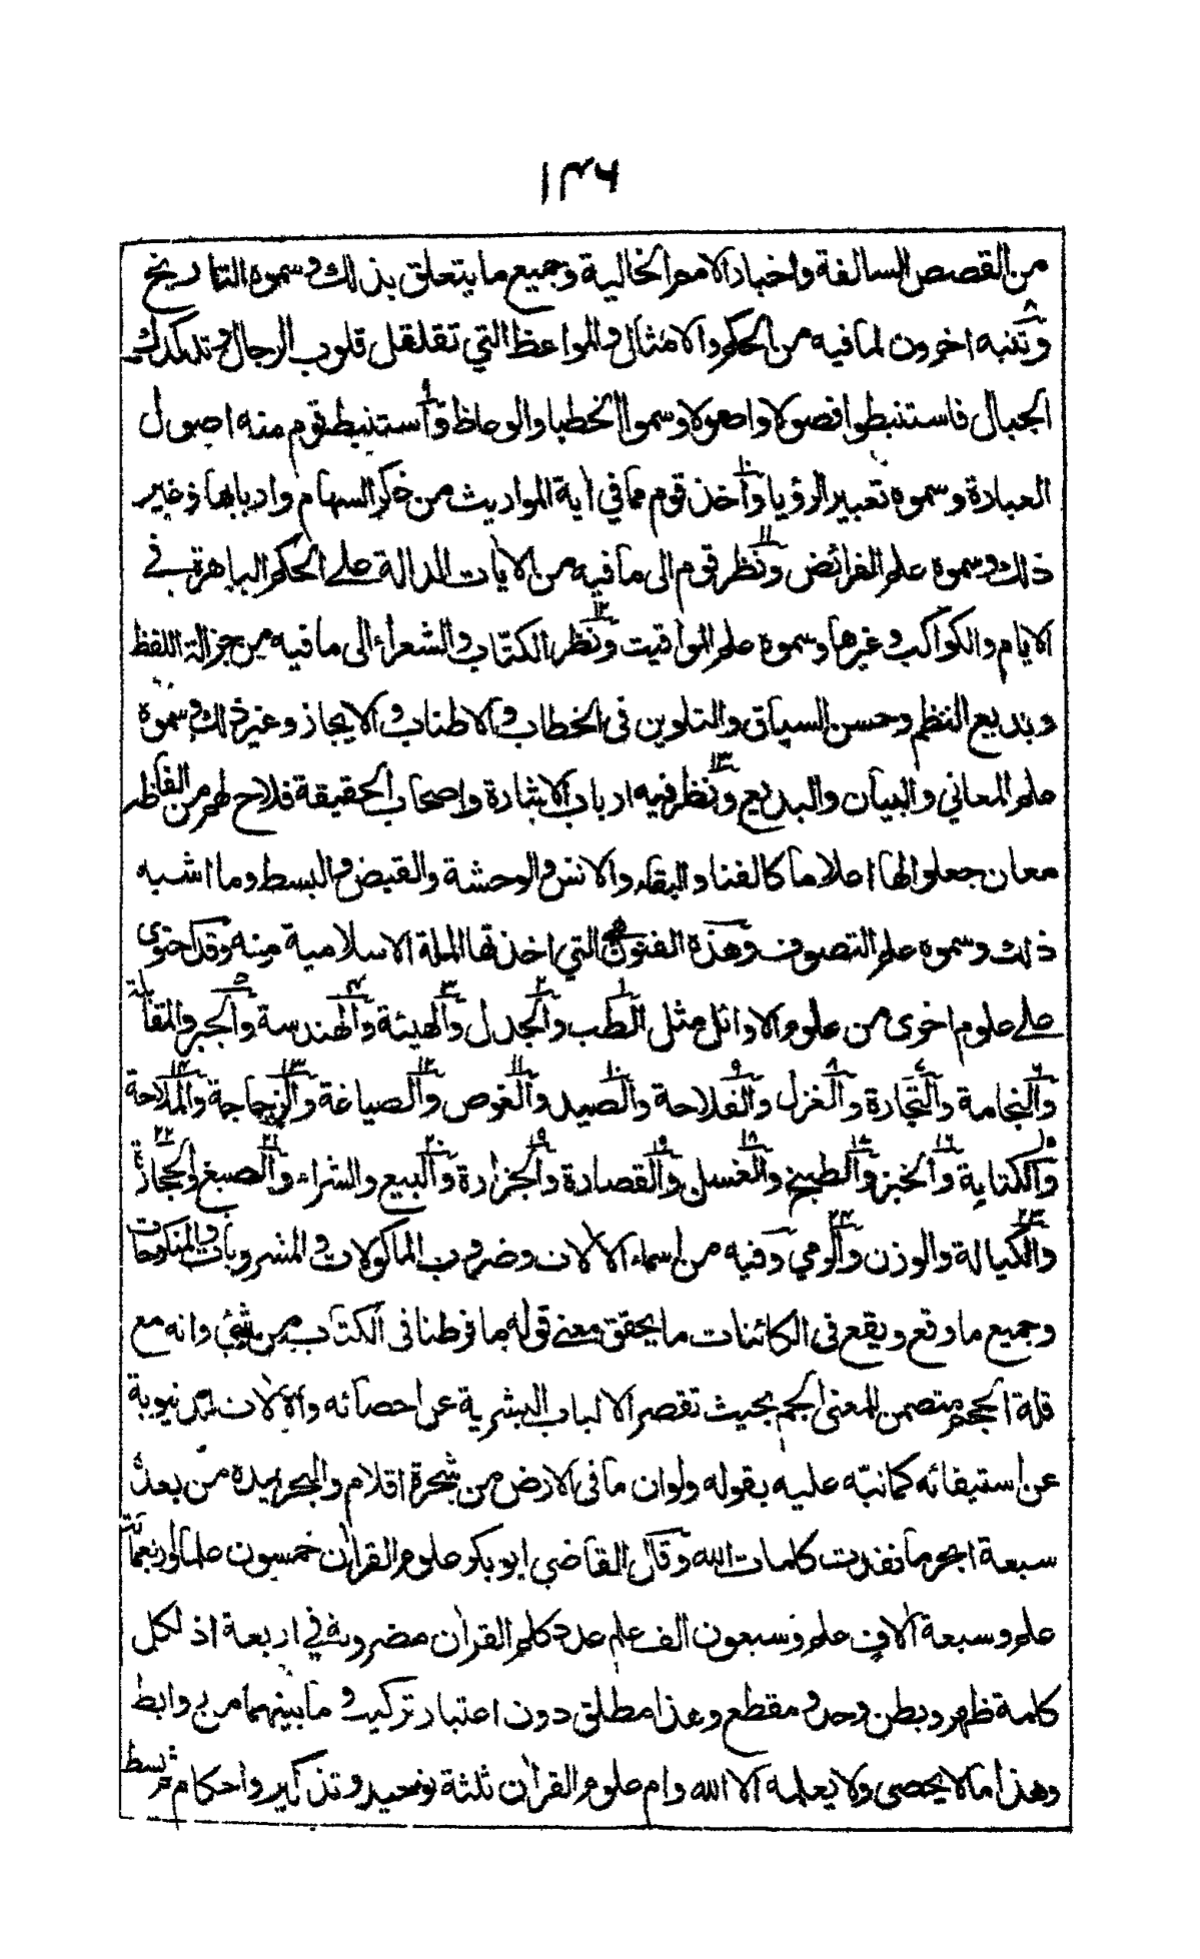 ١٣٦
من القصص السالفة واخبار الامم الخالية وجميع ما يتعلق بذلك وسموه التاريخ
٨ وتنبه اخرون لما فيه من الحكم والامثال والمواعظ التي تقلقل قلوب الرجال وتدكدك
الجبال فاستنبطوا فصولا واصولا وسموا الخطبا والوعاظ ٩ واستنبط قوم منه اصول
العبارة وسموه تعبير الرؤيا ١٠ واخذ قوم مما في اية المواريث من ذكر السهام واربابها وغير
ذلك وسموه علم الفرائض ١١ ونظر قوم الى ما فيه من الايات الدالة على الحكم الباهرة في
الايام والكواكب وغيرها وسموه علم المواقيت ١٢ ونظر الكتاب والشعراء الى ما فيه من جزالة اللفظ
وبديع النظم وحسن السياق والتلوين في الخطاب والاطناب والايجاز وغير ذلك وسموه
علم المعاني والبيان والبديع ١٣ ونظر فيه ارباب الاشارة واصحاب الحقيقة فلاح لهم من الفاظه
معان جعلوا لها اعلاما كالفنا والبقاء والانس والوحشة والقبض والبسط وما اشبه
ذلك وسموه علم التصوف وهذه الفنون هي التي اخذتها الملة الاسلامية منه وقد احتوى
على علوم اخرى من علوم الاوائل مثل ١ الطب ٢ والجدل ٣ والهيئة ٤ والهندسة ٥ والجبر والمقابلة
٦ والنجامة ٧ والتجارة ٨ والغزل ٩ والفلاحة ١٠ والصيد ١١ والغوص ١٢ والصياغة ١٣ والزجاجة ١٤ والملاحة
١٥ والكتابة ١٦ والخبز والطبخ ١٨ والغسل ١٩ والقصارة ١٩ والجزارة ٢٠ والبيع والشراء ٢١ والصبغ ٢٢ والحجارة
٢٣ والكيالة والوزن ٢٤ والرمي وفيه من اسماء الالات وضروب الماكولات والمشروبات والمنكوحات
وجميع ما وقع ويقع في الكائنات ما يحقق معنى قوله ما فرطنا في الكتاب من شيء وانه مع
قلة الحجم متضمن للمعنى الجم بحيث تقصر الالباب البشرية عن احصائه والالات الدنيوية
عن استيفائه كما نبه عليه بقوله ولو ان ما في الارض من شجرة اقلام والبحر يمده من بعده
سبعة ابحر ما نفدت كلمات الله وقال القاضي ابو بكر علوم القران خمسون علما واربعمائة
علم وسبعة الاف علم وسبعون الف علم عدد كلم القران مضروبة في اربعة اذ لكل
كلمة ظهر وبطن وحد ومقطع وهذا مطلق دون اعتبار تركيب وما بينهما من روابط
وهذا ما لا يحصى ولا يعلمه الا الله وام علوم القران ثلثة توحيد وتذكير واحكام ثم بسط